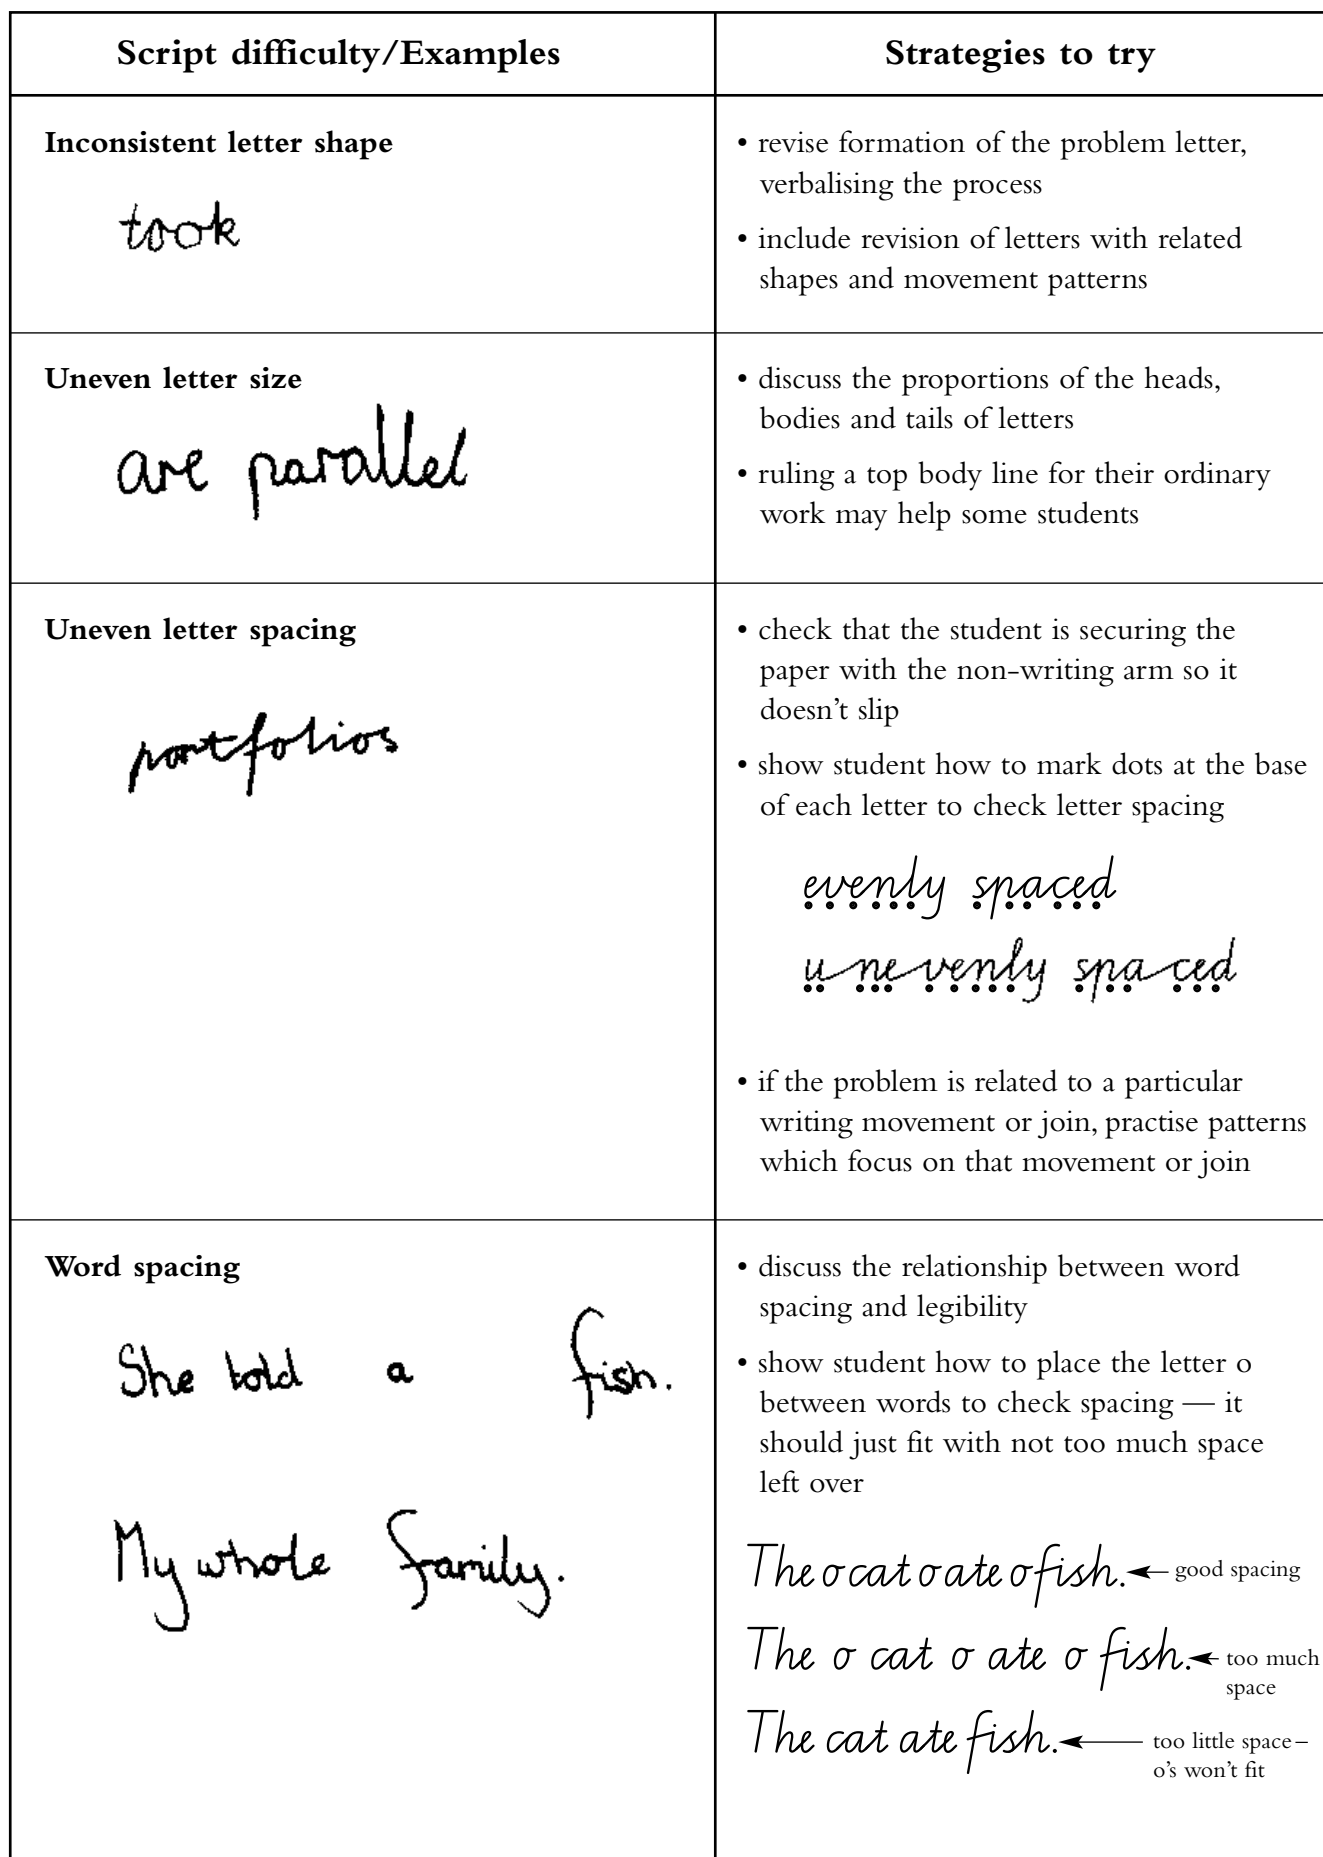 Script difficulty/Examples
Strategies to try
Inconsistent letter shape
took
• revise formation of the problem letter,
verbalising the process
• include revision of letters with related
shapes and movement patterns
Uneven letter size
are parallel
• discuss the proportions of the heads,
bodies and tails of letters
• ruling a top body line for their ordinary
work may help some students
Uneven letter spacing
portfolios
• check that the student is securing the
paper with the non-writing arm so it
doesn't slip
• show student how to mark dots at the base
of each letter to check letter spacing
evenly spaced
unevenly spaced
• if the problem is related to a particular
writing movement or join, practise patterns
which focus on that movement or join
Word spacing
She told a fish.
My whole family.
• discuss the relationship between word
spacing and legibility
• show student how to place the letter o
between words to check spacing — it
should just fit with not too much space
left over
The o cat o ate o fish. good spacing
The o cat o ate o fish. too much
space
The cat ate fish. too little space –
o's won't fit